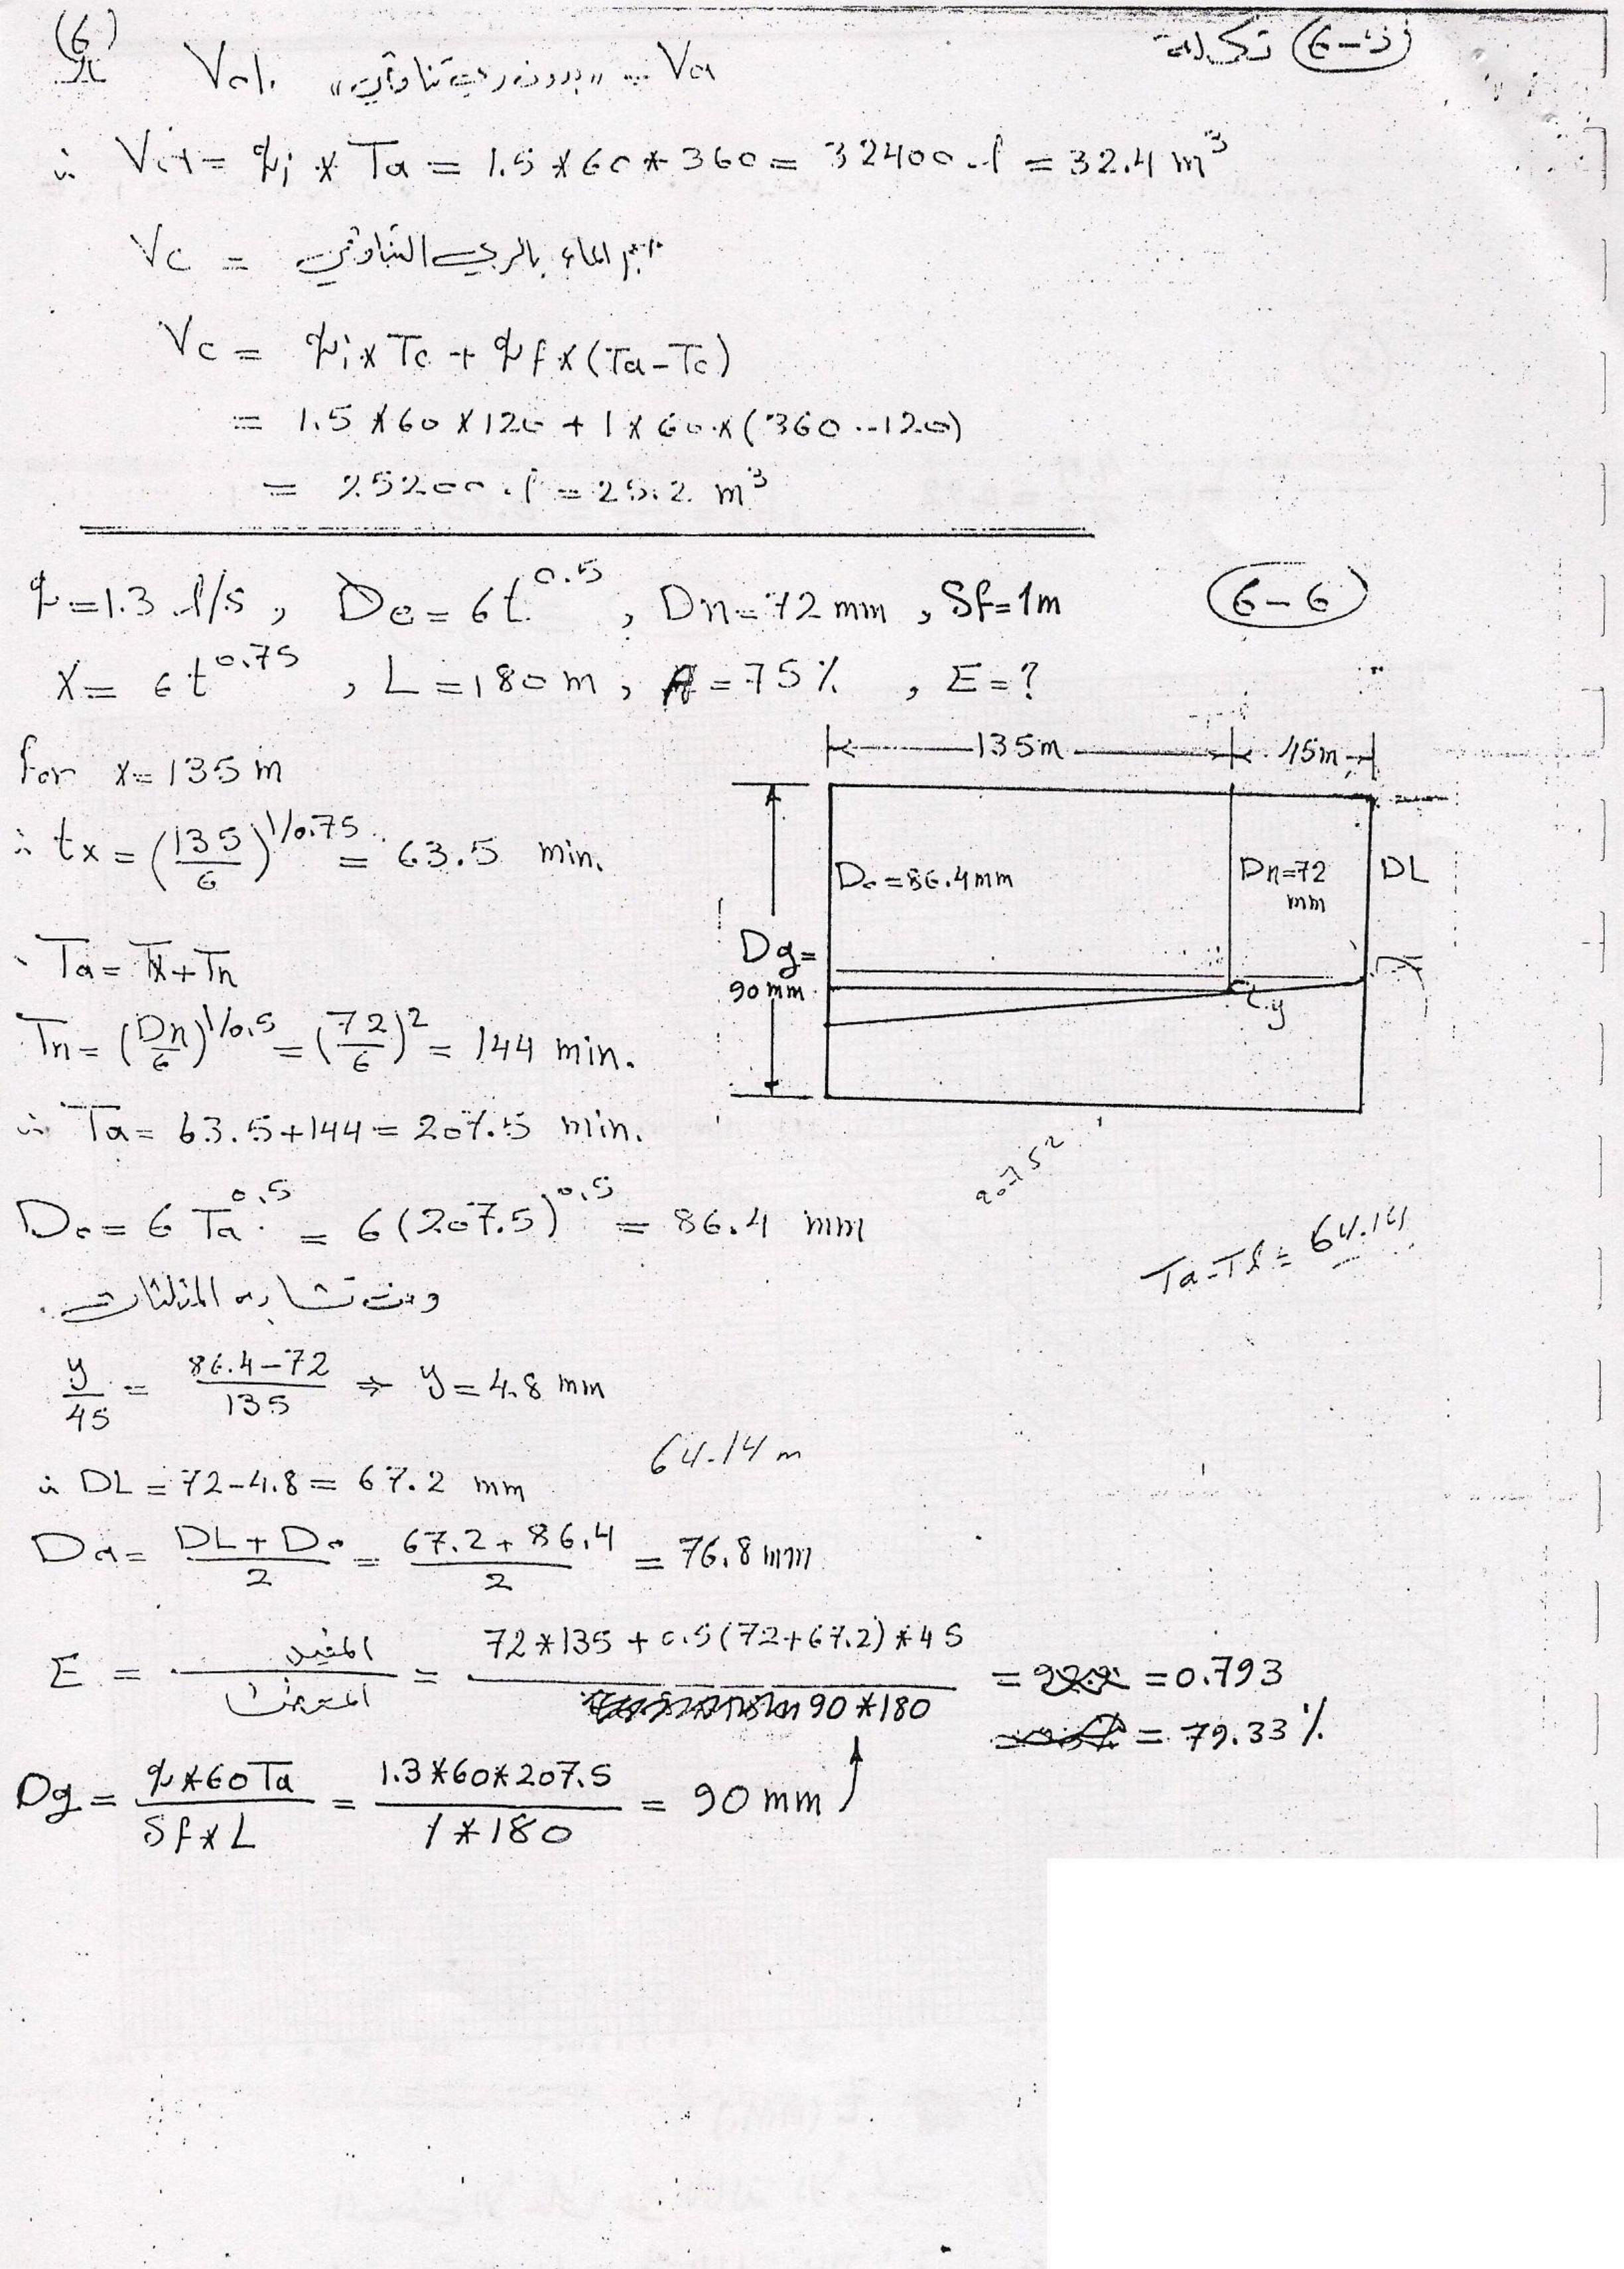 (6)
تكملة (6-5)
Vol. "بدون ري تناوبي" = Va
∴ Va = qi * Ta = 1.5*60*360 = 32400 l = 32.4 m³
Vc = حجم الماء بالري التناوبي
Vc = qi * Tc + qf * (Ta-Tc)
= 1.5*60*120 + 1*60*(360-120)
= 25200 l = 25.2 m³
(6-6)
q=1.3 l/s , De=6t^0.5 , Dn=72 mm , Sf=1m
X= 6t^0.75 , L=180m , A=75% , E=?
for x=135m
∴ tx = (135/6)^1/0.75 = 63.5 min.
Ta= Tx+Tn
Tn= (Dn/6)^1/0.5 = (72/6)^2 = 144 min.
∴ Ta= 63.5+144=207.5 min.
135m
45m
Do=86.4mm
Dn=72 mm
DL
Dg= 90mm
y
Do= 6 Ta^0.5 = 6(207.5)^0.5 = 86.4 mm
Ta-Tl= 64.14
ومن تشابه المثلثات
y/45 = (86.4-72)/135 ⇒ y=4.8 mm
64.14 m
∴ DL=72-4.8= 67.2 mm
Da= (DL+Do)/2 = (67.2+86.4)/2 = 76.8mm
E = المفيد/المعطى = (72*135+0.5(72+67.2)*45)/(90*180) = 0.793
= 79.33%
Dg= (q*60Ta)/(Sf*L) = (1.3*60*207.5)/(1*180) = 90 mm